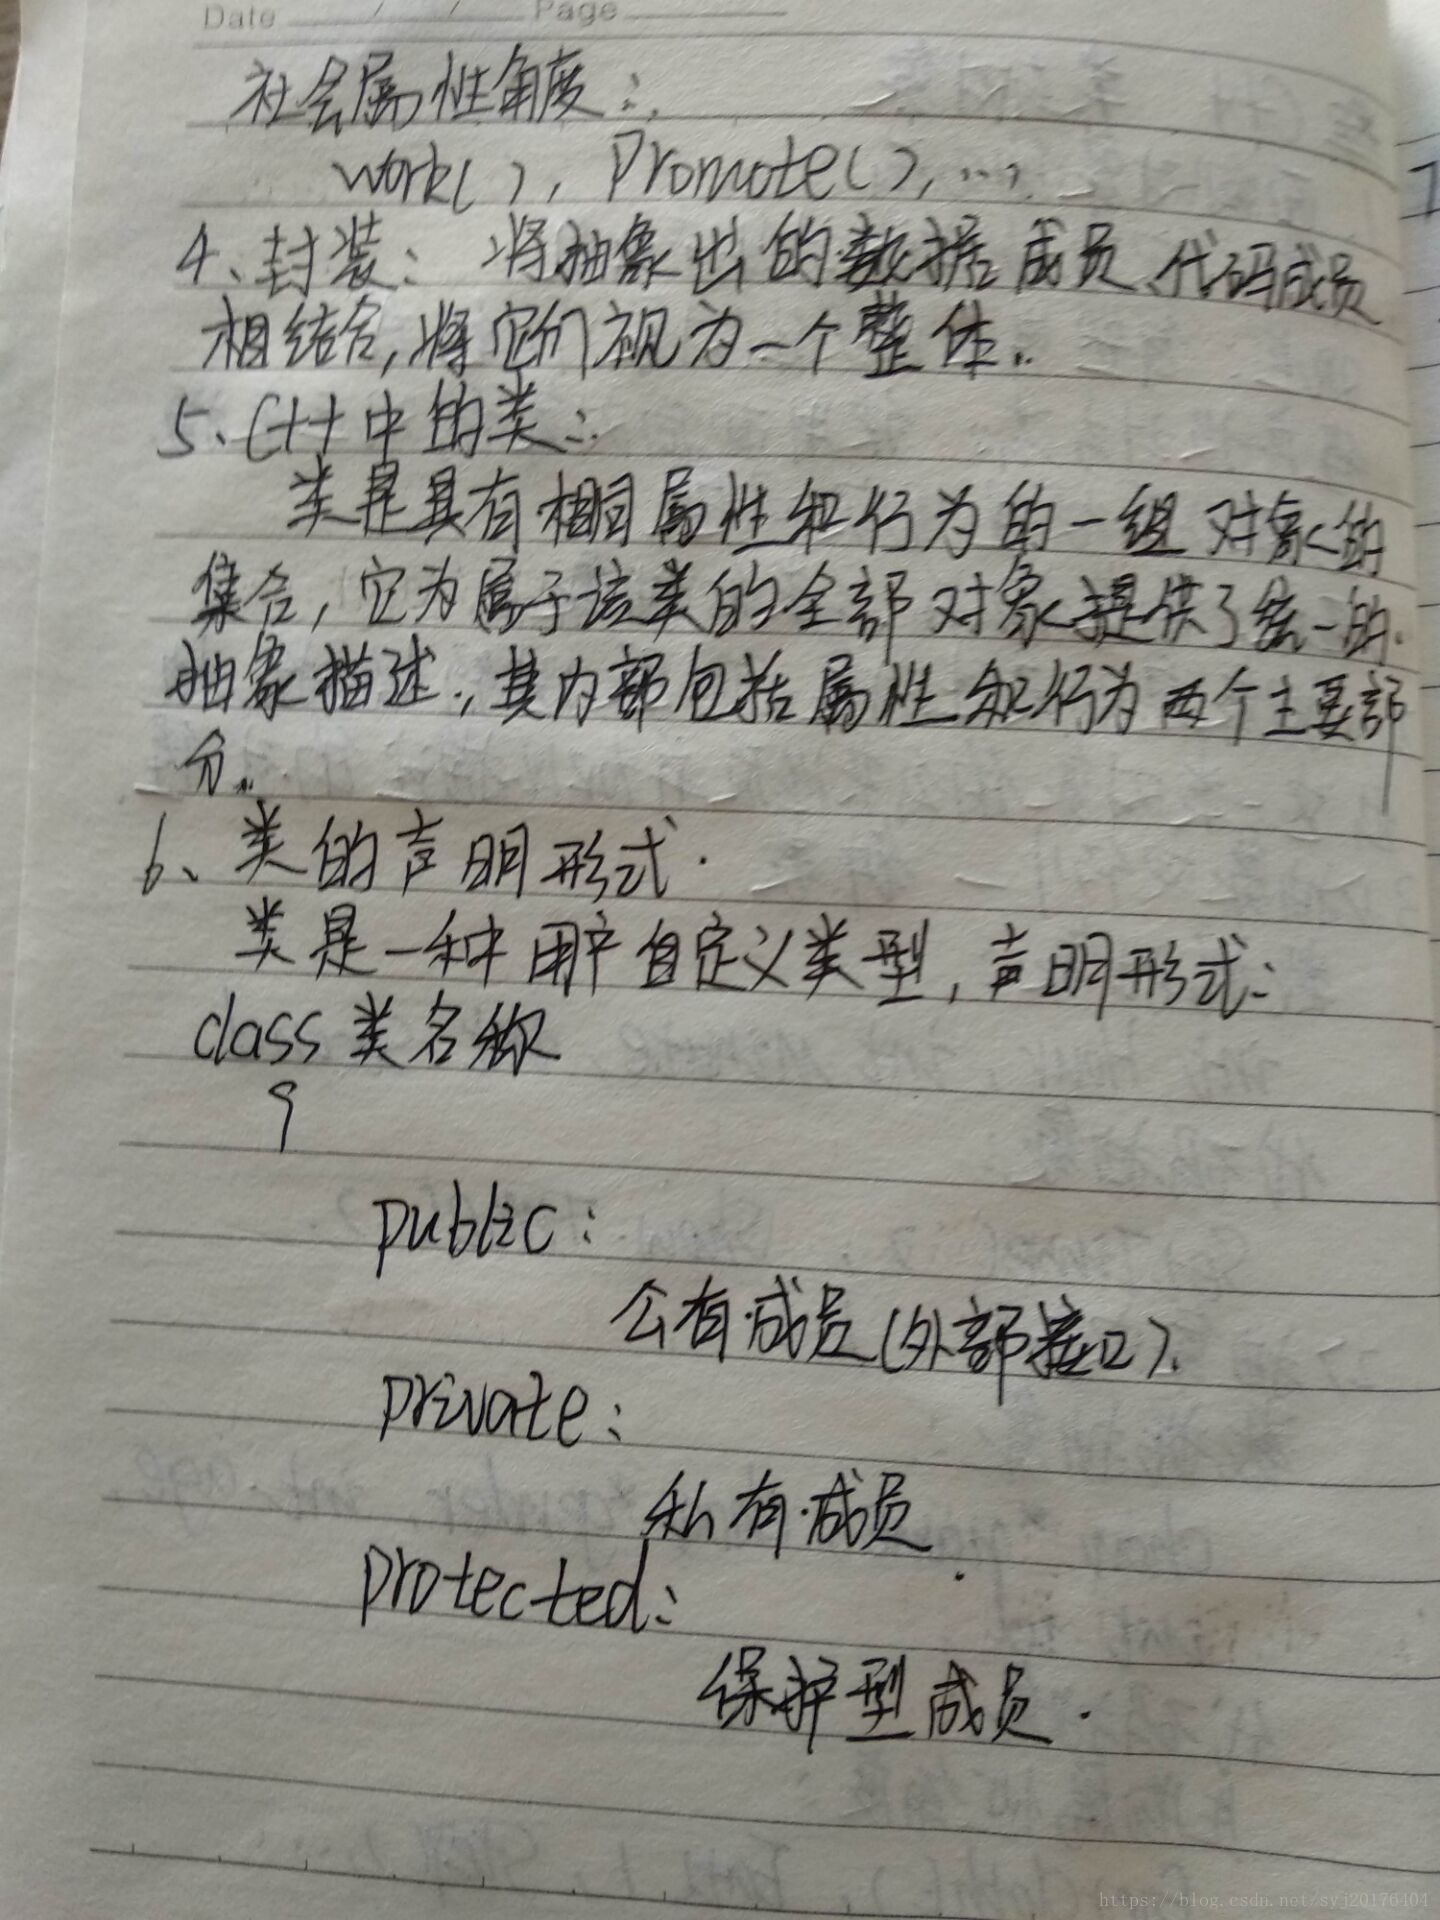 Date / / Page
社会属性角度:
work( ), Promote( ), ...
4、封装: 将抽象出的数据成员、代码成员
相结合,将它们视为一个整体.
5、C++中的类:
类是具有相同属性和行为的一组对象的
集合,它为属于该类的全部对象提供了统一的
抽象描述,其内部包括属性和行为两个主要部
分.
6、类的声明形式.
类是一种用户自定义类型,声明形式:
class 类名称
{
public:
公有成员(外部接口).
private:
私有成员.
protected:
保护型成员.
https://blog.csdn.net/syj20176404